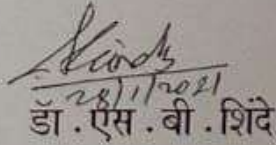 28/1/2021
डॉ . एस . बी . शिंदे